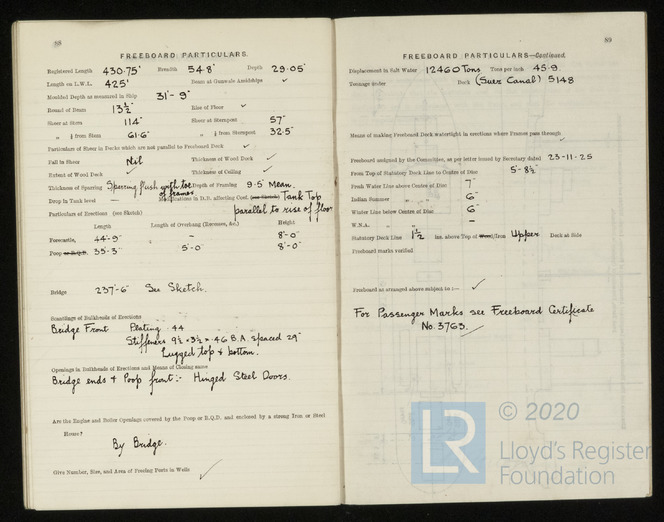 88
FREEBOARD PARTICULARS.
Registered Length 430·75' Breadth 54·8' Depth 29·05'
Length on L.W.L. 425' Beam at Gunwale Amidships ✓
Moulded Depth as measured in Ship 31'- 9"
Round of Beam 13½" Rise of Floor ✓
Sheer at Stem 114" Sheer at Sternpost 57"
" ⅛ from Stem 61·6" " ⅛ from Sternpost 32·5"
Particulars of Sheer in Decks which are not parallel to Freeboard Deck ✓
Fall in Sheer Nil Thickness of Wood Deck ✓
Extent of Wood Deck ✓ Thickness of Ceiling ✓
Thickness of Sparring Sparring flush with toe of frames Depth of Framing 9·5" Mean.
Drop in Tank level — Modifications in D.B. affecting Coef. (see Sketch) Tank Top
parallel to rise of floor
Particulars of Erections (see Sketch)
Length Length of Overhang (Recesses, &c.) Height
Forecastle, 44'-9" – 8'-0"
Poop or R.Q.D. 35'-3" 5'-0" 8'-0"
Bridge 237'-6" See Sketch.
Scantlings of Bulkheads of Erections
Bridge Front Plating ·44
Stiffeners 9½ × 3½ × ·46 B.A. spaced 29"
Lugged top & bottom.
Openings in Bulkheads of Erections and Means of Closing same
Bridge ends & Poop front:- Hinged Steel Doors.
Are the Engine and Boiler Openings covered by the Poop or R.Q.D. and enclosed by a strong Iron or Steel
House?
By Bridge.
Give Number, Size, and Area of Freeing Ports in Wells ✓
89
FREEBOARD PARTICULARS—Continued.
Displacement in Salt Water 12460 Tons Tons per inch 45·9
Tonnage under Deck (Suez Canal) 5148
Means of making Freeboard Deck watertight in erections where Frames pass through ✓
Freeboard assigned by the Committee, as per letter issued by Secretary dated 23-11-25
From Top of Statutory Deck Line to Centre of Disc 5'- 8½"
Fresh Water Line above Centre of Disc 7"
Indian Summer " " 6"
Winter Line below Centre of Disc 6"
W.N.A. " " –
Statutory Deck Line 1½ ins. above Top of Wood/Iron Upper Deck at Side
Freeboard marks verified
Freeboard as arranged above subject to :— ✓
For Passenger Marks see Freeboard Certificate
No. 3763.
LR
© 2020
Lloyd's Register
Foundation